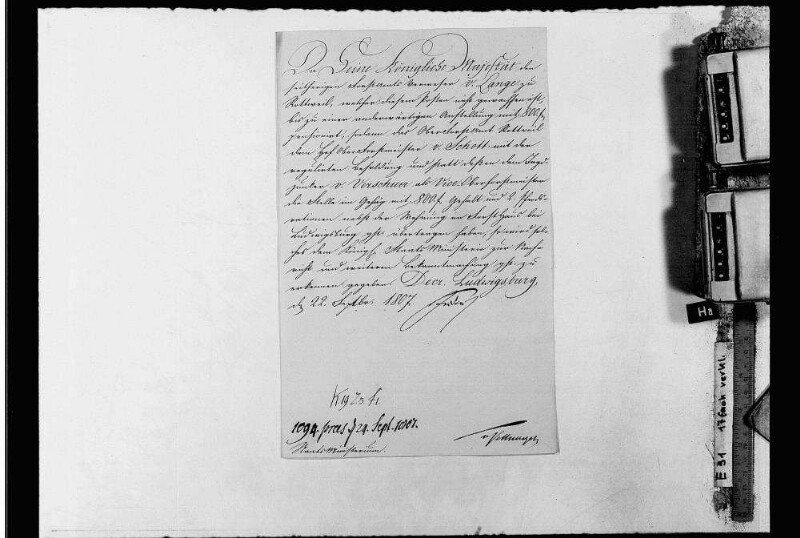 Da Seine Königliche Majestät den
seitherigen Forstamts Verweser v. Lange zu
Rottweil, welcher diesem Posten nicht gewachsen ist,
bis zu einer anderwärtigen Anstellung mit 800 f.
pensionirt, sodann das Oberforstamt Rottweil
dem Hof Oberforstmeister v. Schott mit der
regulirten Besoldung und statt dessen dem Jagd-
junker v. Verschuer als Vice Oberforstmeister
die Stelle im Gefüg mit 800 f. Gehalt und 2 Pferds-
rationen nebst der Wohnung im Forsthaus bei
Ludwigsburg gst. übertragen haben, so wird sol-
ches dem Königl. Staats Ministerio zur Nach-
richt und weiterm Bekanntmachung gst. zu
erkennen gegeben. Decr. Ludwigsburg,
d. 22. Septbr. 1807.
1094. praes. d. 24. Sept. 1807.
Staats Ministerium.
Ha
17fach verkl.
E 31